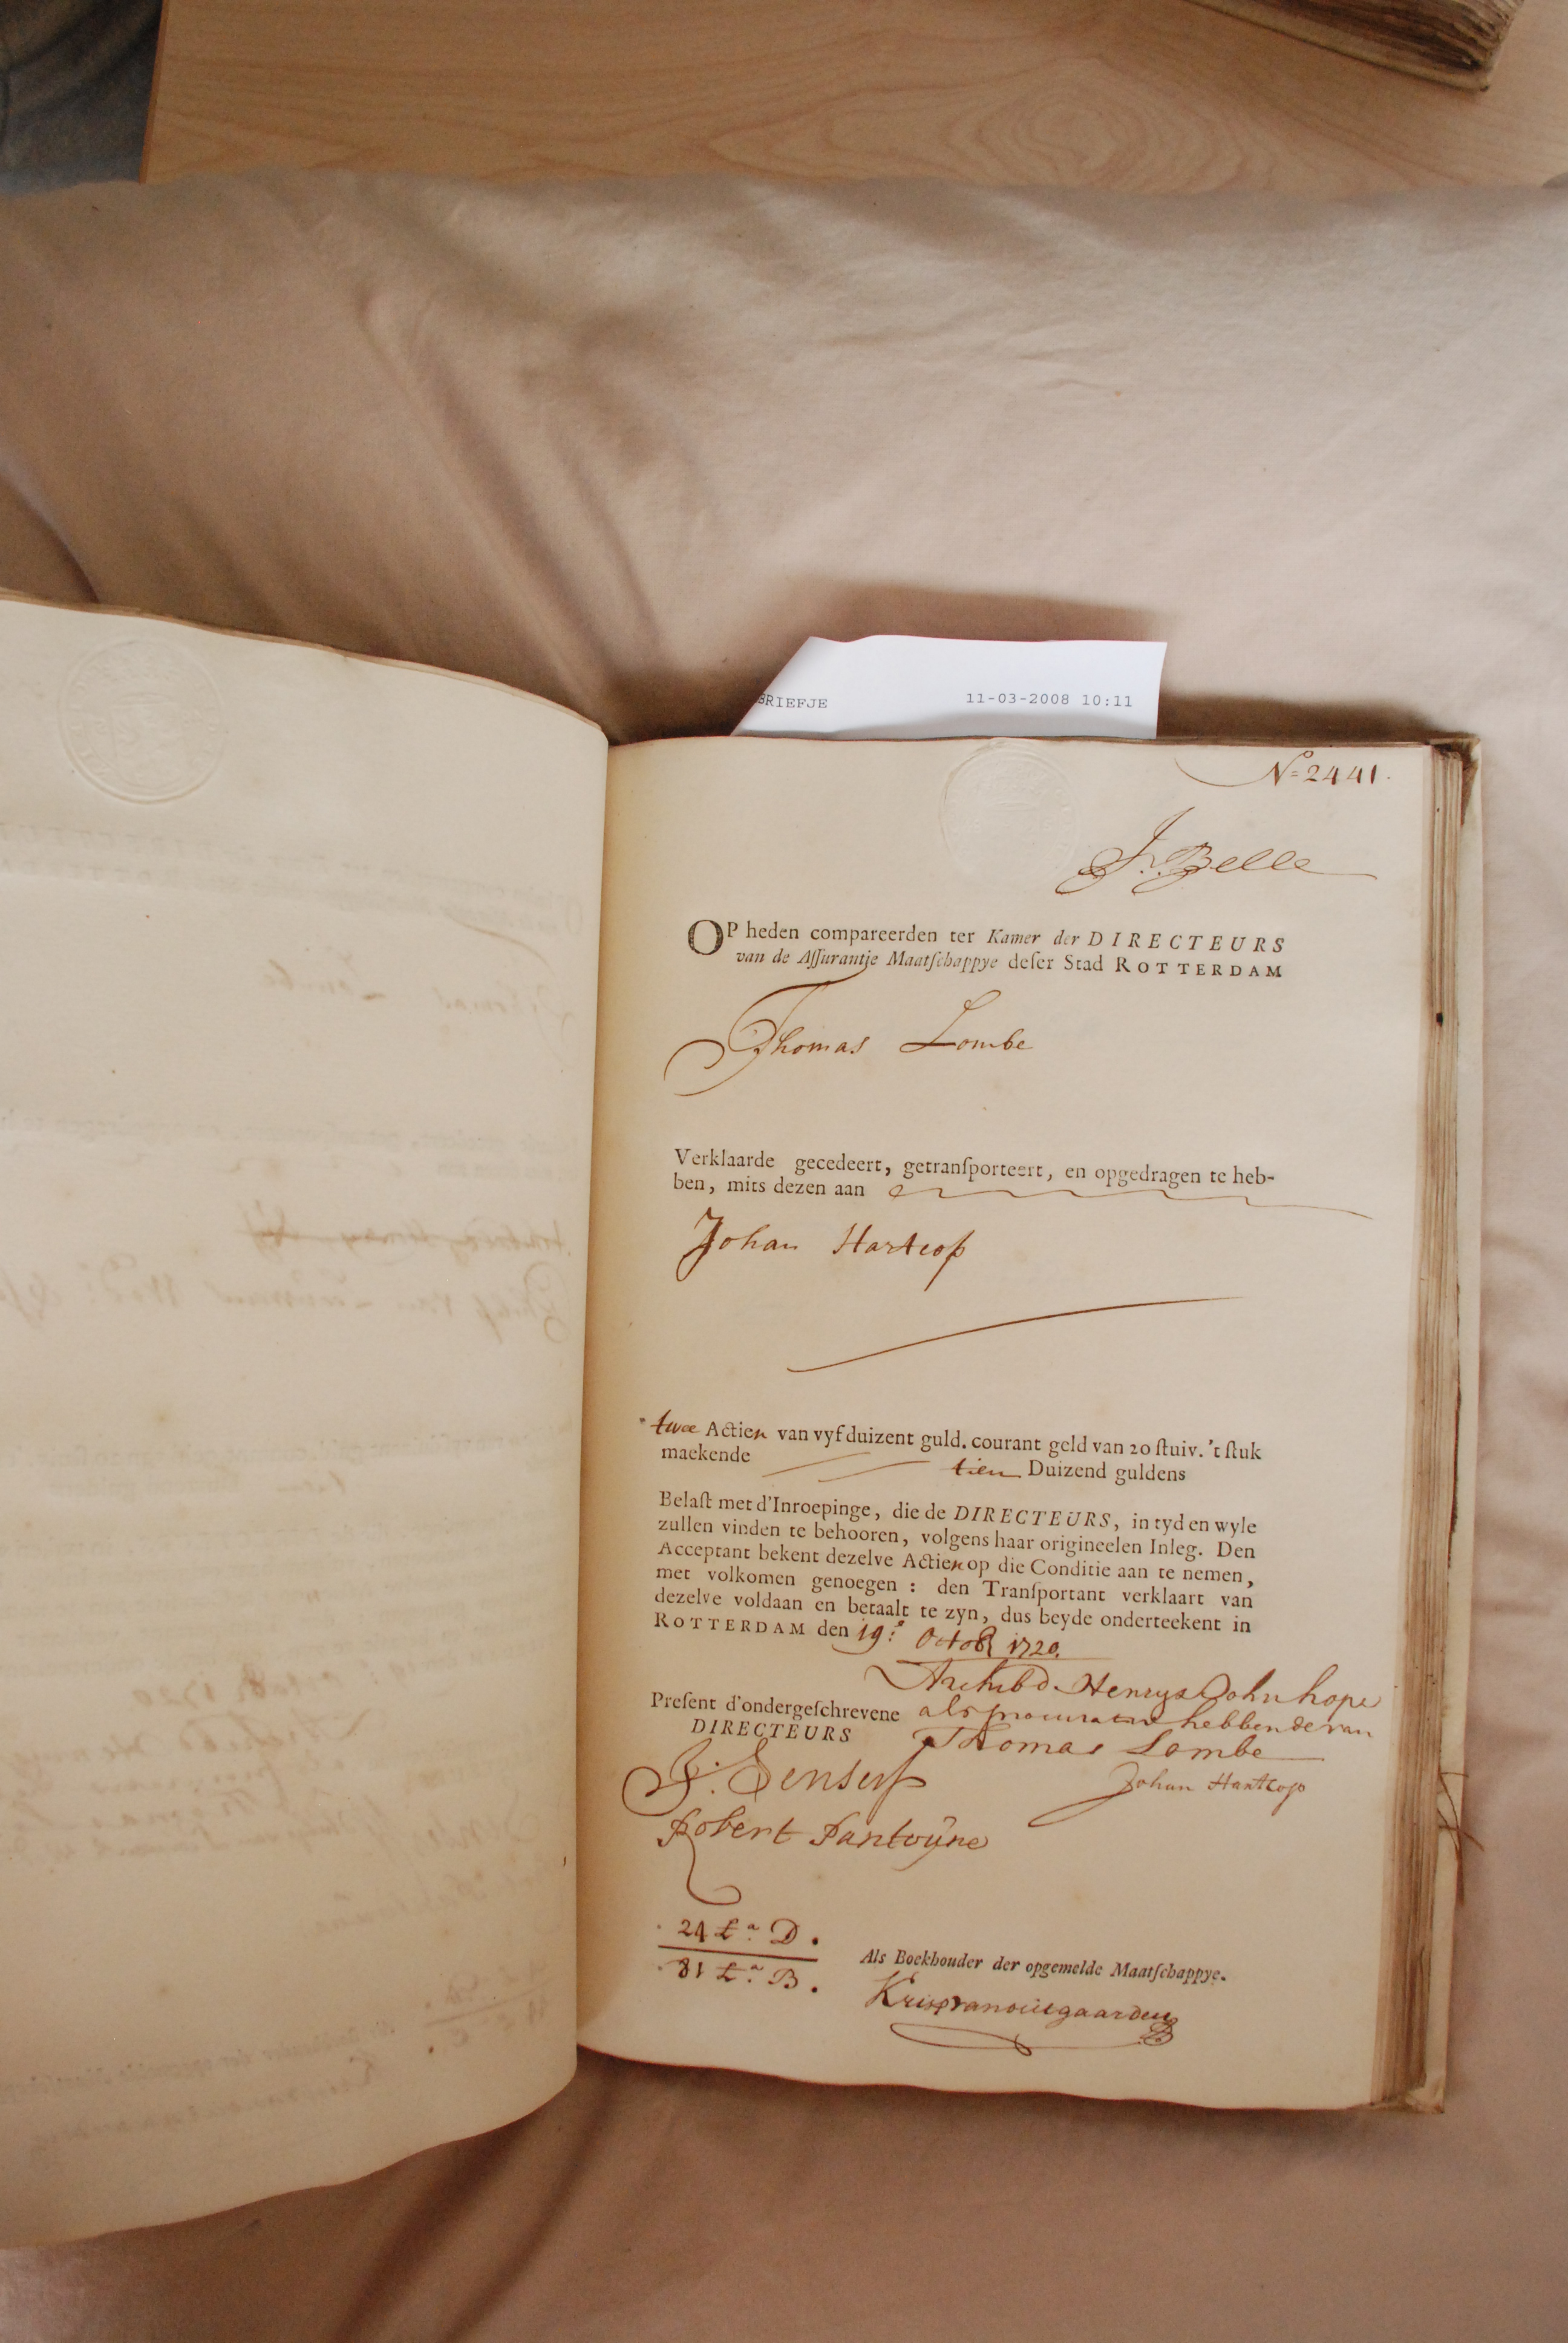 BRIEFJE 11-03-2008 10:11
No=2441.
J. Belle
OP heden compareerden ter Kamer der DIRECTEURS
van de Aſſurantie Maatſchappye deſer Stad ROTTERDAM
Thomas Lombe
Verklaarde gecedeert, getranſporteert, en opgedragen te heb-
ben, mits dezen aan
Johan Hartcop
twee Actien van vyf duizent guld. courant geld van 20 ſtuiv. 't ſtuk
maekende tien Duizend guldens
Belaſt met d'Inroepinge, die de DIRECTEURS, in tyd en wyle
zullen vinden te behooren, volgens haar origineelen Inleg. Den
Acceptant bekent dezelve Actien op die Conditie aan te nemen,
met volkomen genoegen : den Tranſportant verklaart van
dezelve voldaan en betaalt te zyn, dus beyde onderteekent in
ROTTERDAM den 19: Octob 1720.
Archibd. Henry & John hope
Preſent d'ondergeſchrevene als procuratie hebbende van
DIRECTEURS Thomas Lombe
Johan Hartcop
Robert
24 La D.
81 La B.
Als Boekhouder der opgemelde Maatſchappye.